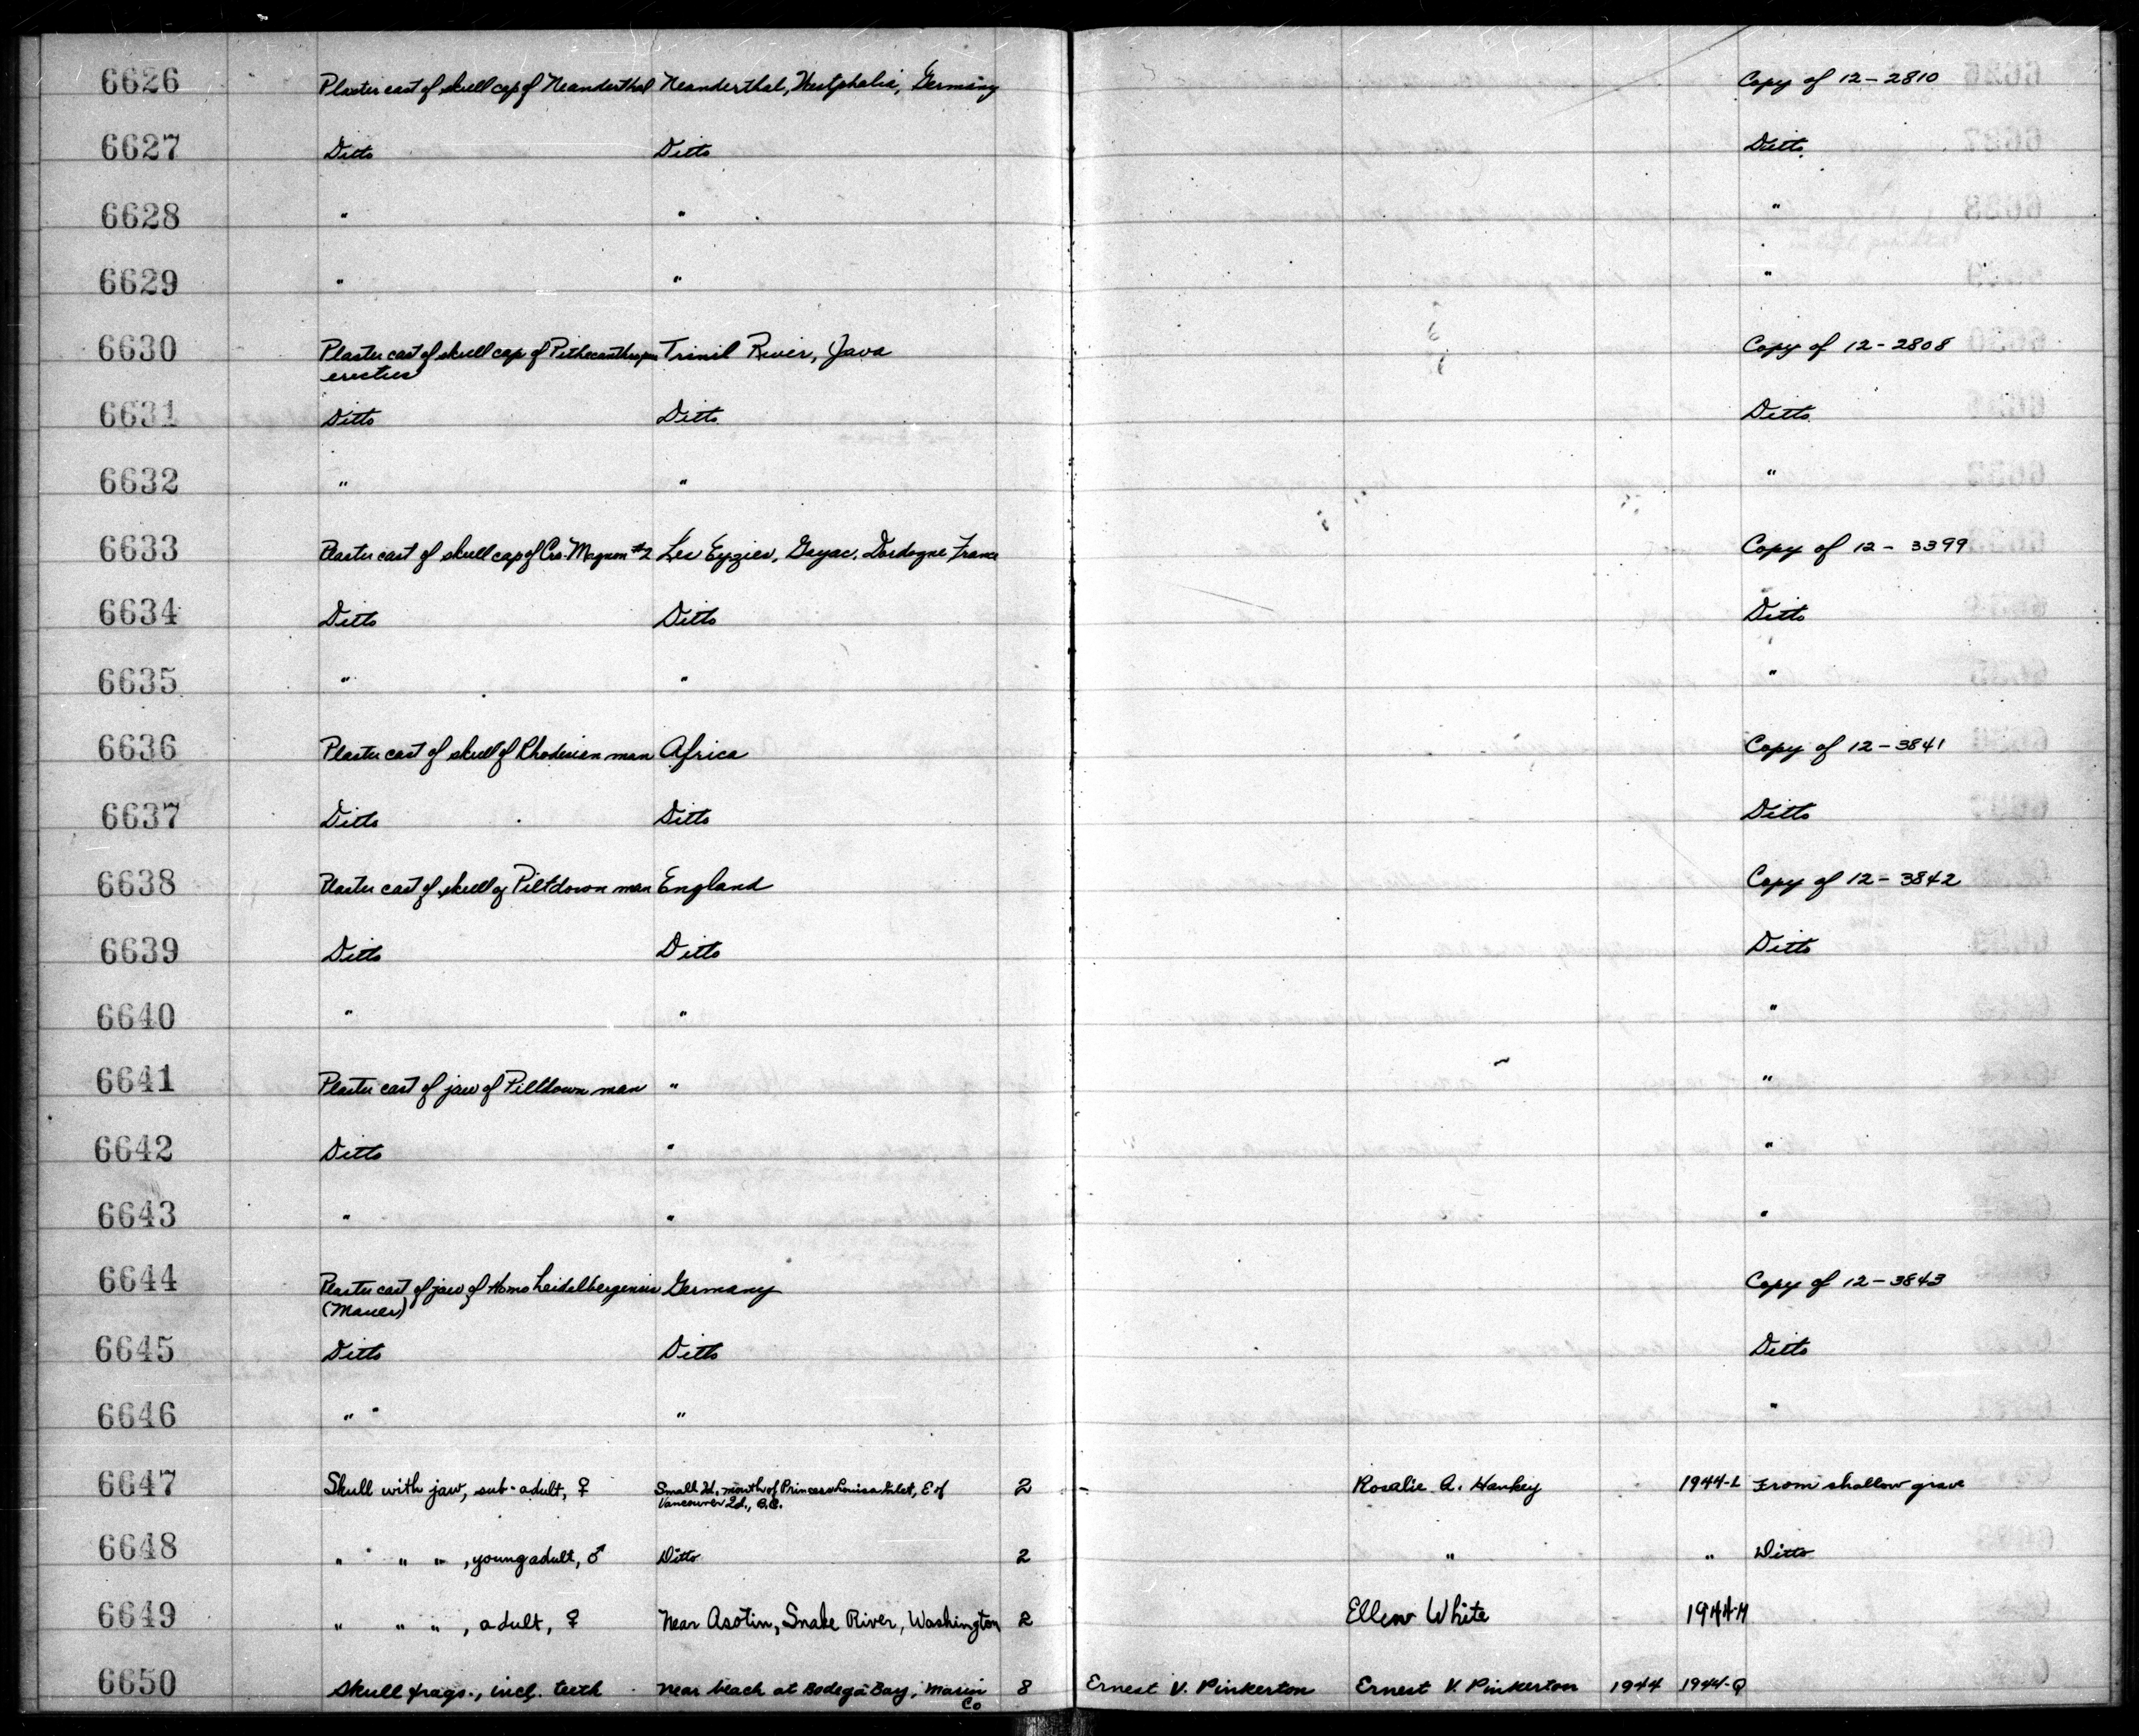 6626 Plaster cast of skull cap of Neanderthal Neanderthal, Westphalia, Germany Copy of 12-2810
6627 Ditto Ditto Ditto
6628 " " "
6629 " " "
6630 Plaster cast of skull cap of Pithecanthropus Trinil River, Java Copy of 12-2808
erectus
6631 Ditto Ditto Ditto
6632 " " "
6633 Plaster cast of skull cap of Cro-Magnon #2 Les Eyzies, Gayac, Dordogne France Copy of 12-3399
6634 Ditto Ditto Ditto
6635 " " "
6636 Plaster cast of skull of Rhodesian man Africa Copy of 12-3841
6637 Ditto Ditto Ditto
6638 Plaster cast of skull of Piltdown man England Copy of 12-3842
6639 Ditto Ditto Ditto
6640 " " "
6641 Plaster cast of jaw of Piltdown man " "
6642 Ditto " "
6643 " " "
6644 Plaster cast of jaw of Homo heidelbergensis Germany Copy of 12-3843
(Mauer)
6645 Ditto Ditto Ditto
6646 " " " "
6647 Skull with jaw, sub-adult, ♀ Small Id. mouth of Princess Louisa Inlet, E of 2 - Rosalie A. Hankey 1944-L From shallow grave
Vancouver Id., B.C.
6648 " " " , young adult, ♂ Ditto 2 " " Ditto
6649 " " " , adult, ♀ Near Asotin, Snake River, Washington 2 Ellen White 1944-M
6650 Skull frags., incl. teeth Near beach at Bodega Bay, Marin 8 Ernest V. Pinkerton Ernest V. Pinkerton 1944 1944-Q
Co